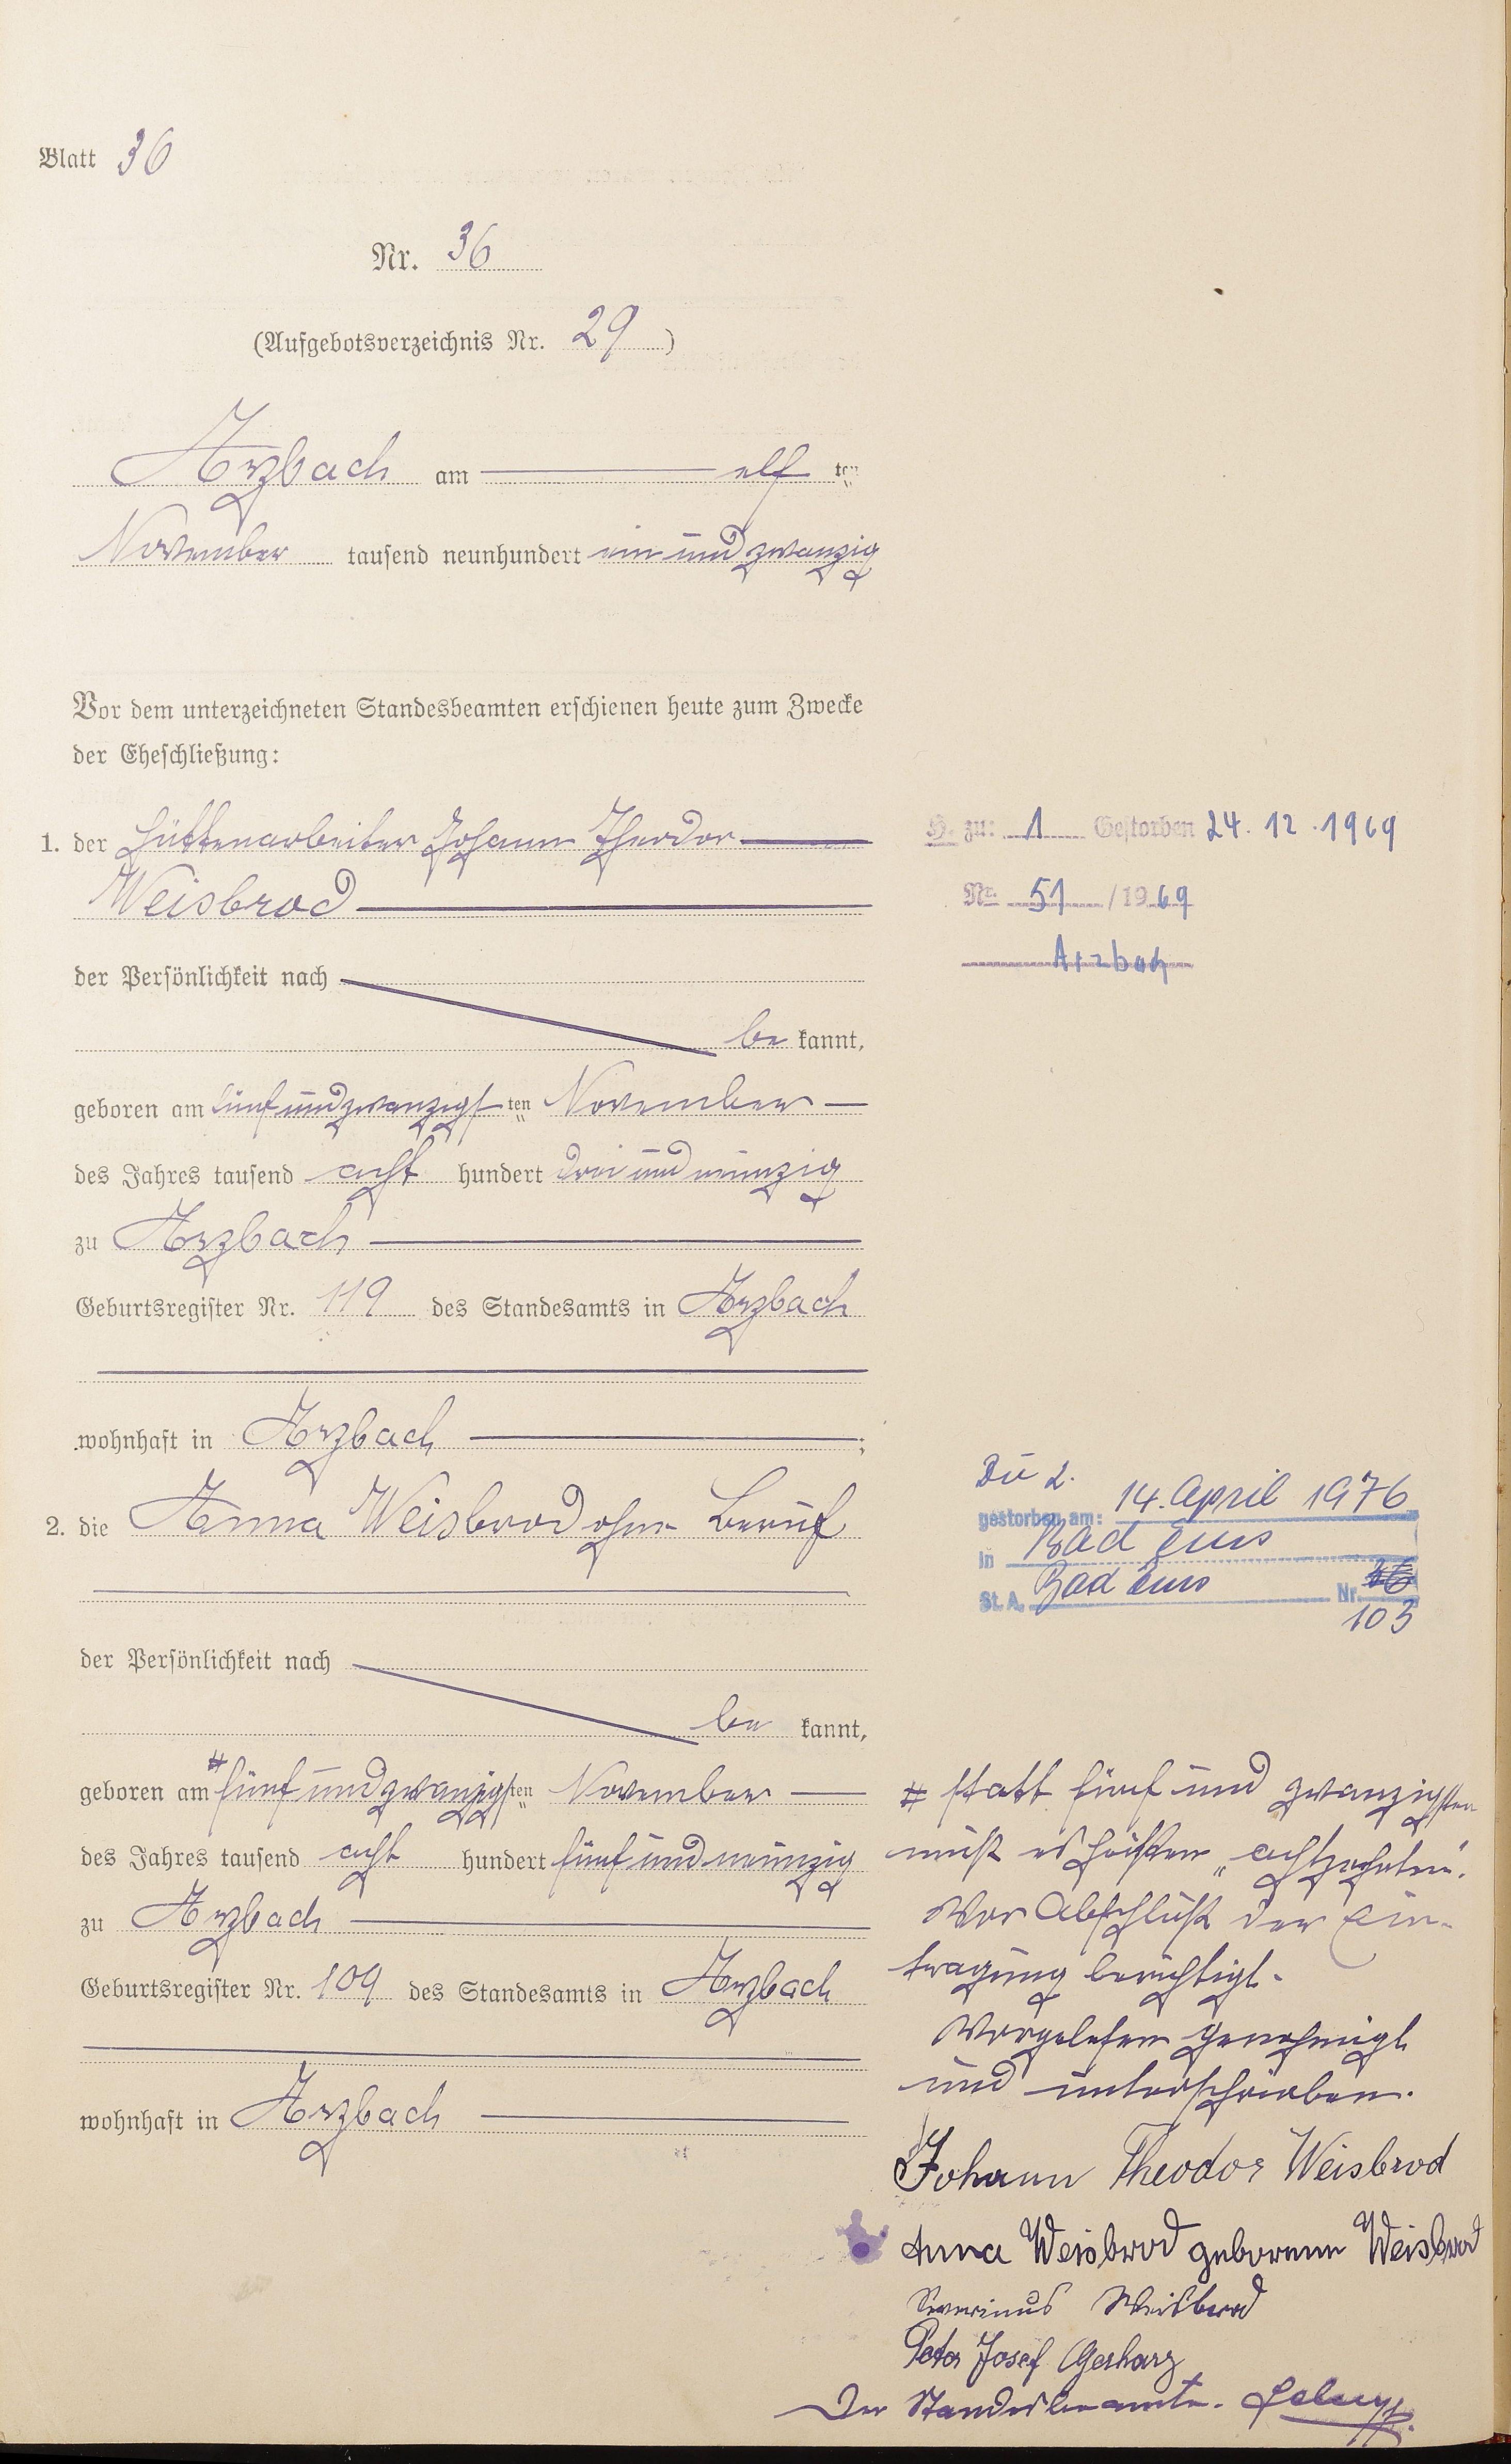 Blatt 36
Nr. 36
(Aufgebotsverzeichnis Nr. 29)
Arzbach am elf ten
November tausend neunhundert ein und zwanzig
Vor dem unterzeichneten Standesbeamten erschienen heute zum Zwecke
der Eheschließung:
1. der Hüttenarbeiter Johann Theodor
Weisbrod
der Persönlichkeit nach
be kannt,
geboren am fünf und zwanzigsten November
des Jahres tausend acht hundert drei und neunzig
zu Arzbach
Geburtsregister Nr. 119 des Standesamts in Arzbach
wohnhaft in Arzbach ;
2. die Anna Weisbrod ohne Beruf
der Persönlichkeit nach
be kannt,
geboren am # fünf und zwanzigsten November
des Jahres tausend acht hundert fünf und neunzig
zu Arzbach
Geburtsregister Nr. 109 des Standesamts in Arzbach
wohnhaft in Arzbach
H. zu: 1 Gestorben 24. 12. 1969
Nr. 51 / 1969
Arzbach
Die 2.
gestorben am: 14. April 1976
in Bad Ems
St. A. Bad Ems Nr.
103
# statt fünf und zwanzigsten
muß es heißen „achtzehnten".
Vor Abschluß der Ein-
tragung berichtigt.
Vorgelesen genehmigt
und unterschrieben.
Johann Theodor Weisbrod
Anna Weisbrod geborene Weisbrod
Severinus Weisbrod
Peter Josef Gerharz
Der Standesbeamte.